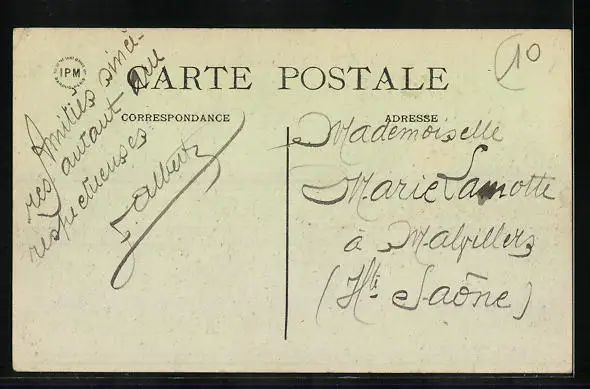 IPM
CARTE POSTALE
CORRESPONDANCE
Amitiés sincè-
res autant que
respectueuses
Albert
ADRESSE
Mademoiselle
Marie Lamotte
à Malvillers
(Hte Saône)
10